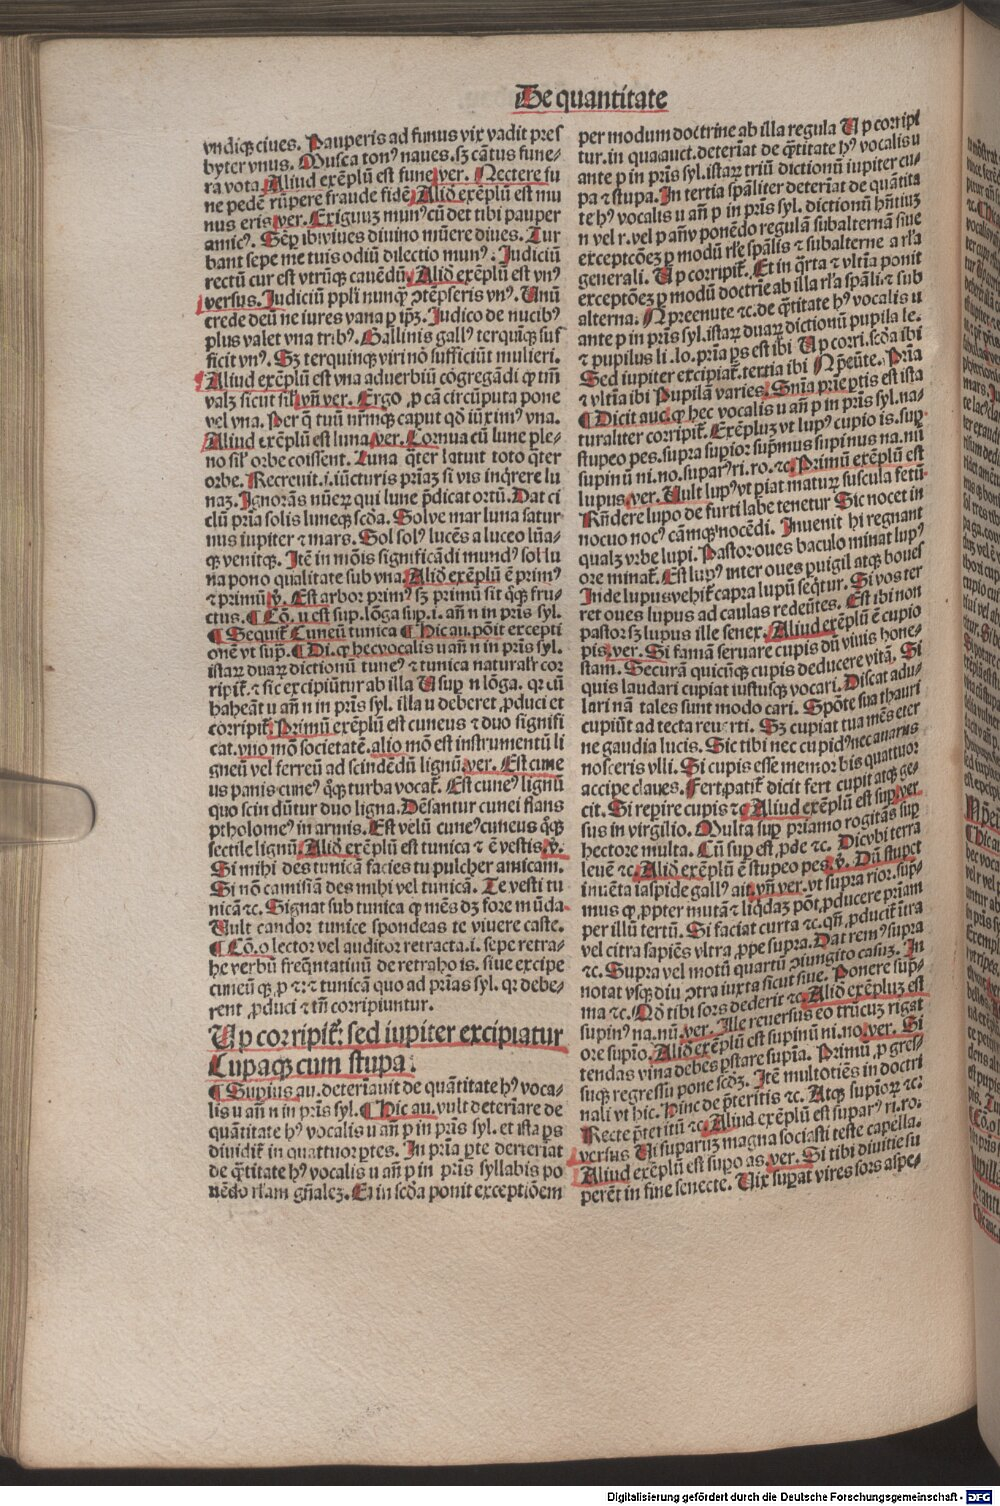 De quantitate
vndiqꝫ ciues. Pauperis ad funus vix vadit pres
byter vnus. Musca tonꝰ naues. sꝫ cātus fune⸗
ra vota Aliud exēplū est fune ver. Nectere fu
ne pedē rūpere fraude fidē Aliđ exēplū est mu
nus eris ver. Exiguuꝫ munꝰ cū det tibi pauper
amicꝰ. Sēp ibi viues diuino mūere diues. Tur
bant sepe me tuis odiū dilectio munꝰ: Judiciū
rectū cur est vtrūqꝫ cauēdū. Aliđ exēplū est vnꝰ
versus. Judiciū ppl'i nunqꝫ ꝯtēpseris vnꝰ. Unū
crede deū ne iures vana p ipꝫ. Judico de nucibꝰ
plus valet vna tribꝰ. Gallinis gallꝰ terquīqꝫ suf
ficit vnꝰ. Sꝫ terquinqꝫ viri nō sufficiūt mulieri.
Aliud exēplū est vna aduerbiū cōgregādi ꝙ tm̄
valꝫ sicut sil' vn̄ ver. Ergo ꝓ cā circūputa pone
vel vna. Per
Aliud exēplū est luna ver. Cornua cū lune ple⸗
no sil' orbe coissent. Luna q̄ter latuit toto q̄ter
orbe. Recreuit .i. iūcturis priaꝫ si vis inq̄rere lu
naꝫ. Ignorās nūeꝝ qui lune p̄dicat ortū. Dat ci
clū pria solis luneqꝫ scđa. Solue mar luna satur
nus iupiter ⁊ mars. Sol solꝰ lucēs a luceo lūa⸗
qꝫ venitqꝫ. Itē in mōis significādi mundꝰ sol lu
na pono qualitate sub vna. Aliđ exēplū ē primꝰ
⁊ primū ꝟ. Est arbor primꝰ sꝫ primū sit qꝫ fru⸗
ctus. ¶ Cō. u est sup. lōga sup. i. an̄ n in pris syl.
¶ Sequit̄ Cuneū tunica ¶ Hic au. pōit excepti
onē vt supͣ. ¶ Di. ꝙ hec vocalis u an̄ n in pris syl.
istaꝝ duaꝝ dictionū tuneꝰ ⁊ tunica naturalr cor
ripit̄. ⁊ sic excipiūtur ab illa U sup n lōga. qr cū
habeāt u an̄ n in pris syl. illa u deberet ꝓduci et
corripit̄. Primū exēplū est cuneus ⁊ duo signifi
cat. vno mō societatē. alio mō est instrumētū li
gneū vel ferreū ad scindēdū lignū. ver. Est cune
us panis cuneꝰ q̄qꝫ turba vocat̄. Est cuneꝰ lignū
quo scindūtur duo ligna. Dēsantur cunei flans
ptholomeꝰ in armis. Est velū cuneꝰ cuneus q̄qꝫ
sectile lignū. Aliđ exēplū est tunica ⁊ ē vestis. ꝟ.
Si mihi des tunicā facies tu pulcher amicam.
Si nō camisiā des mihi vel tunicā. Te vesti tu
nicā ⁊c. Signat sub tunica ꝙ mēs dꝫ fore mūda.
Uult candor tunice spondeas te viuere caste.
¶ Cō. o lector vel auditor retracta .i. sepe retra⸗
he verbū freq̄ntatiuū de retraho is. siue excipe
cuneū qꝫ ꝓ ⁊ : ⁊ tunicā quo ad prias syl. qr debe⸗
rent ꝓduci ⁊ tn̄ corripiuntur.
Up corripit̄: sed iupiter excipiatur
Cupaqꝫ cum stupa:
¶ Supius au. deteriauit de quātitate hꝰ voca⸗
lis u an̄ n in pris syl. ¶ Hic au. vult deteriare de
quātitate hꝰ vocalis u an̄ p in pris syl. et ista ps
diuidit̄ in quattuor ptes. In pria pte deteriat
de q̄titate hꝰ vocalis u an̄ p in pris syllabis po
nēdo rl'am gn̄alē. Et in scđa ponit exceptiōem
per modum doctrine ab illa regula Up corripi
tur. in qua auct. deteriat de q̄titate hꝰ vocalis u
ante p in pris syl. istaꝝ triū dictionū iupiter cu⸗
pa ⁊ stupa. In tertia spāliter deteriat de quātita
te hꝰ vocalis u an̄ p in pris syl. dictionū hn̄tiuꝫ
n vel r. vel p an̄ v ponēdo regulā subalternā siue
exceptōeꝫ p modū rl'e spālis ⁊ subalterne a rl'a
generali. Up corripit̄. Et in q̄rta ⁊ vltia ponit
exceptōeꝫ p modū doctrie ab illa rl'a spāli ⁊ sub
alterna. Np preeunte ⁊c. de q̄titate hꝰ vocalis u
ante p in pris syl. istaꝝ duaꝝ dictionū pupila le.
⁊ pupilus li. lo. pria ps est ibi Up corri. scđa ibi
Sed iupiter excipiat̄. tertia ibi Np̄eūte. Pria
⁊ vltia ibi Pupilā varies. Sn̄ia prie ptis est ista
¶ Dicit auc. ꝙ hec vocalis u an̄ p in pris syl. na⸗
turaliter corripit̄. Exēpluꝫ vt lupꝰ cupio is. sup.
stupeo pes. supra supior sup̄mus supinus na. nū
supinū ni. no. suparꝰ ri. ro. ⁊c. Primū exēplū est
lupus. ver. Uult lupꝰ vt piat matuꝝ suscula fetū.
Rn̄dere lupo de furti labe tenetur Sic nocet in
nocuo nocꝰ cāmqꝫ nocēdi. Inuenit hi regnant
qualꝫ vrbe lupi. Pastor oues baculo minat lupꝰ
ore minat̄. Est lupꝰ inter oues puigil atqꝫ boues
Inde lupus vehit̄ capra lupū seq̄tur. Si vos ter
ret oues lupus ad caulas redeūtes. Est ibi non
pastor sꝫ lupus ille senex. Aliud exēplū ē cupio
pis. ver. Si famā seruare cupis dū viuis hone⸗
stam. Securā quicūqꝫ cupis deducere vitā. Si
quis laudari cupiat iustusqꝫ vocari. Discat adu⸗
lari nā tales sunt modo cari. Spōte sua thauri
cupiūt ad tecta reuerti. Sꝫ cupiat tua mēs eter
ne gaudia lucis. Sic tibi nec cupidꝰ nec auarus
nosceris vlli. Si cupis esse memor bis quattuor
accipe claues. Fert patit̄ dicit fert cupit atqꝫ ge⸗
cit. Si repire cupis ⁊c Aliud exēplū est sup ver.
sus in virgilio. Multa sup priamo rogitās sup
hectore multa. Cū sup est ꝓde ⁊c. Dicvbi terra
leuē ⁊c. Aliđ exēplū ē stupeo pes ꝟ. Dū stupet
inuēta iaspide gallꝰ ait. vn̄ ver. vt supra rior. sup⸗
mus ꝙ ꝓpter mutā ⁊ liqđaꝫ pōt ꝓducere priam
per illū tertū. Si faciat curta ⁊c. qn̄ ꝓducit̄ itra
vel citra sapiēs vltra ꝓpe supra. Dat remꝰ supra
⁊c. Supra vel motū quartū ꝯiungito casuꝫ. In
notat vsqꝫ diu ꝯtra iuxta sicut siue. Ponere sup̄⸗
ma ⁊c. Qđ tibi sors dederit ⁊c Aliđ exēpluꝫ est
supinꝰ na. nū. ver. Ille reuersus eo trucuꝫ rigat
ore supīo. Aliđ exēplū est supinū ni. no. ver. Si
tendas vina debes pstare supīa. Primū ꝓ gres⸗
suqꝫ regressu pone scđꝫ. Itē multotiēs in doctri
nali vt hic. Hinc de p̄teritis ⁊c. Atqꝫ supioꝝ ⁊c:
Recte p̄teritū ⁊c. Aliud exēplū est suparꝰ ri. ro.
versus Ut suparuꝫ magna sociasti teste capella.
Aliud exēplū est supo as. ver. Si tibi diuitie su
perēt in fine senecte. Uix supat vires sors aspe⸗
Digitalisierung gefördert durch die Deutsche Forschungsgemeinschaft - DFG